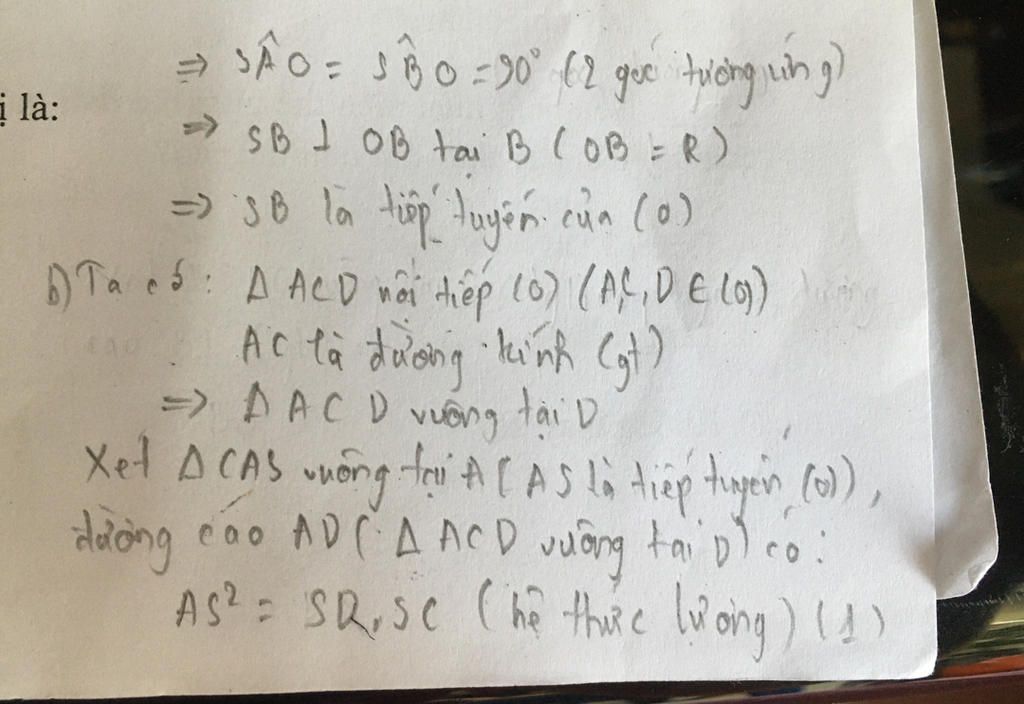 ⇒ SÂO = SB̂O = 90° (2 góc tương ứng)
ị là:
⇒ SB ⊥ OB tại B (OB = R)
⇒ SB là tiếp tuyến của (O)
b) Ta có: Δ ACD nội tiếp (O) (A,C,D ∈ (O))
AC là đường kính (gt)
⇒ Δ ACD vuông tại D
Xét Δ CAS vuông tại A (AS là tiếp tuyến (O)),
đường cao AD (Δ ACD vuông tại D) có:
AS² = SD.SC (hệ thức lượng) (1)